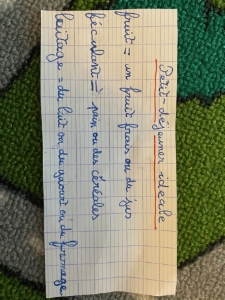 Petit-déjeuner idéale
fruit = un fruit frais ou du jus
féculent = pain ou des céréales
laitage = du lait ou du yaourt ou du fromage